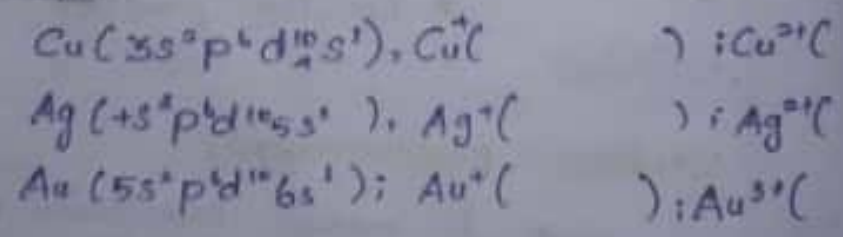 Cu (3s²p⁶d¹⁰₄s¹), Cu⁺( ) ; Cu²⁺(
Ag (4s²p⁶d¹⁰5s¹ ), Ag⁺( ) ; Ag²⁺(
Au (5s²p⁶d¹⁰6s¹); Au⁺( ) ; Au³⁺(